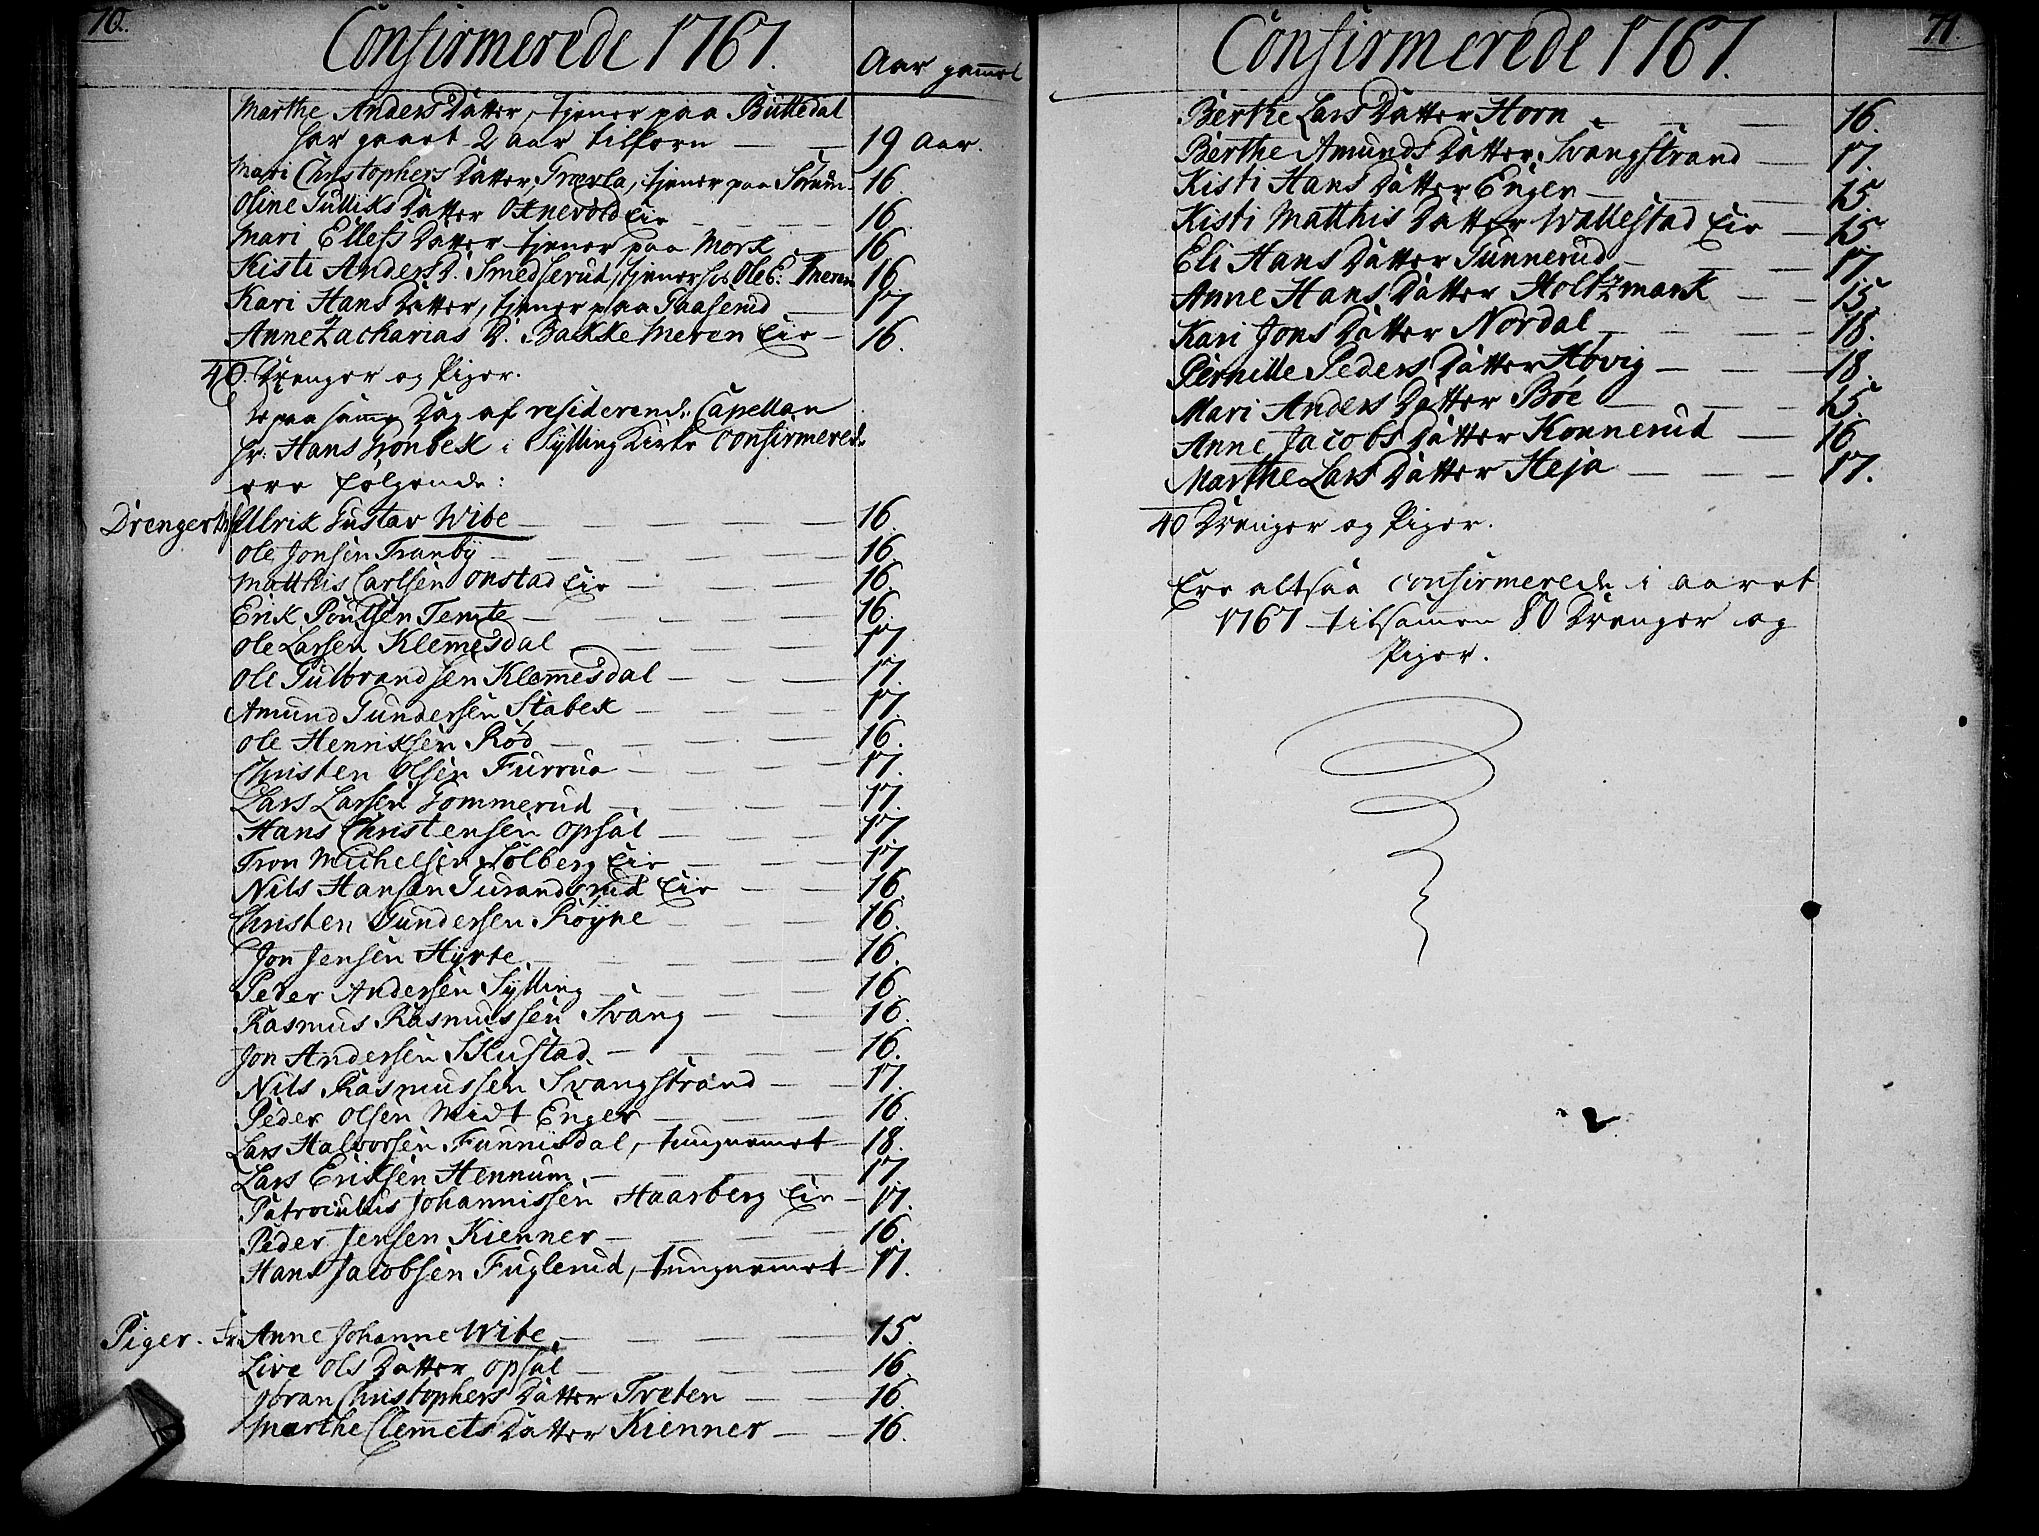 70.
Confirmerede 1767.
Aar gam̅el
Marthe Anders Datter, tjener paa Buttedal
har gaaet 2 Aar tilforn — — 19 Aar.
Mari Christophers Datter Grøvla, tjener paa Sørum — 16.
Oline Gulliks Datter Eir — 16.
Mari Ellefs Datter tjener paa Mork — 16
Kisti Anders D. Smedserud, tjener hos Ole C: Meren 16.
Kari Hans Datter, tjener paa Gaaserud — 17
Anne Zacharias D. Bakke Meren Eir — 16.
40. Drenger og Piger.
De paa sam̅e Dag af residerende Capellan
Hr. Hans Grønbek i Sylling Kirke Confirmerede
ere følgende:
Drenger Ulrik Gustav Wibe — 16.
Ole Jonsen Tranby — 16.
Matthis Carlsen Onstad Eir — 16.
Erik Poulsen Temte — 16.
Ole Larsen Klem̅esdal — 17
Ole Gulbrandsen Klem̅esdal — 17.
Amund Gundersen Stabek — 17
Ole Henriksen Rød — 16.
Christen Olsen Furrua — 17.
Lars Larsen Gommerud — 17.
Hans Christensen Opsal — 17
Tron Michelsen Solberg Eir — 17
Nils Hansen Gurandsrud Eir — 16.
Christen Gundersen Røyne — 16.
Jon Jensen Hyrte — 16.
Peder Andersen Sylling — 16.
Rasmus Rasmussen Svang — 16.
Jon Andersen Skustad — 16.
Nils Rasmussen Svangstrand — 17.
Peder Olsen Midt Enger — 16.
Lars Halvorsen Funnisdal, tungnemmet — 18.
Lars Eriksen Hennum — 17
Patroculus Johannissen Haarberg Eir — 17.
Peder Jensen Kienner — 16.
Hans Jacobsen Fuglerud, tungnemmet — 17.
Piger. Fr. Anne Johanne Wibe — 15.
Live Ols Datter Opsal — 16.
Gøran Christophers Datter Tveten — 16.
Marthe Clemmets Datter Kienner — 16.
71.
Confirmerede 1767.
Berthe Lars Datter Horn — 16.
Berthe Amunds Datter Svangstrand — 17.
Kisti Hans Datter Enger — 15.
Kisti Matthis Datter Wallestad Eir — 15
Eli Hans Datter Gunnerud — 17
Anne Hans Datter Holtzmark — 15.
Kari Jons Datter Nordal — 18.
Pernille Peders Datter Høvig — 18.
Mari Anders Datter Bøe — 15.
Anne Jacobs Datter Konnerud — 16.
Marthe Lars Datter Heja — 17.
40 Drenger og Piger.
Ere altsaa confirmerede i aaret
1767 tilsam̅en 80 Drenger og
Piger.